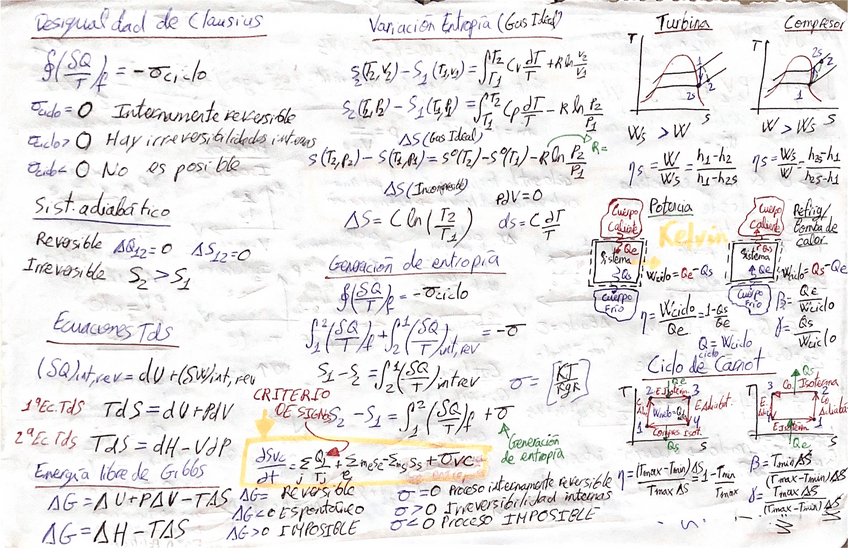 Desigualdad de Clausius
∮(δQ/T)f = -σciclo
σciclo = 0 Internamente reversible
σciclo > 0 Hay irreversibilidades internas
σciclo < 0 No es posible
Sist. adiabático
Reversible ΔQ12=0 ΔS12=0
Irreversible S2 > S1
Ecuaciones Tds
(δQ)int,rev = dU+(δW)int,rev
1ªEc.Tds TdS = dU+PdV
2ªEc.Tds TdS = dH-VdP
Energía libre de Gibbs
ΔG = ΔU+PΔV-TΔS
ΔG = ΔH-TΔS
Variación Entropía (Gas Ideal)
S2(T2,V2)-S1(T1,V1) = ∫T1T2 Cv dT/T + R ln V2/V1
S2(T2,P2)-S1(T1,P1) = ∫T1T2 Cp dT/T - R ln P2/P1
ΔS (Gas Ideal)
S(T2,P2)-S(T1,P1) = S°(T2)-S°(T1)-R ln P2/P1 R=
ΔS (Incompresible) PdV=0
ΔS = C ln(T2/T1) ds = C dT/T
Generación de entropía
∮(δQ/T)f = -σciclo
∫12(δQ/T)f + ∫21(δQ/T)int,rev = -σ
S1-S2 = ∫21(δQ/T)int rev σ = [KJ/KgK]
CRITERIO
DE SIGNOS
S2-S1 = ∫12(δQ/T)f + σ
Generación
de entropía
dSvc/dt = Σj Qj/Tj + Σe mese - Σ msss + σvc
ΔG= Reversible
ΔG<0 Espontático
ΔG>0 IMPOSIBLE
σ=0 Proceso internamente reversible
σ>0 Irreversibilidad internas
σ<0 Proceso IMPOSIBLE
Turbina
T 1 2s 2 S
Ws > W
ηs = W/Ws = h1-h2/h1-h2s
Compresor
T 2s 2 1 S
W > Ws
ηs = Ws/W = h2s-h1/h2s-h1
Potencia
Kelvin
Cuerpo
Caliente
Qe
Sistema
Qs
Cuerpo
Frio
Wciclo=Qe-Qs
η = Wciclo/Qe = 1-Qs/Qe
Qciclo = Wciclo
Refrig/
bomba de
calor
Cuerpo
Caliente
Qs
Sistema
Qe
Cuerpo
Frio
Wciclo=Qs-Qe
β = Qe/Wciclo
γ = Qs/Wciclo
Ciclo de Carnot
T 2 Qe 3
E.Isoterm
Wciclo
E.Adiabat.
1 4
Compres Isot
Qs S
T 3 Qs
C. Isoterma
4 1
E.Isoterm
Qe S
η = (Tmax-Tmin)ΔS/TmaxΔS = 1-Tmin/Tmax
β = TminΔS/(Tmax-Tmin)ΔS
γ = TmaxΔS/(Tmax-Tmin)ΔS